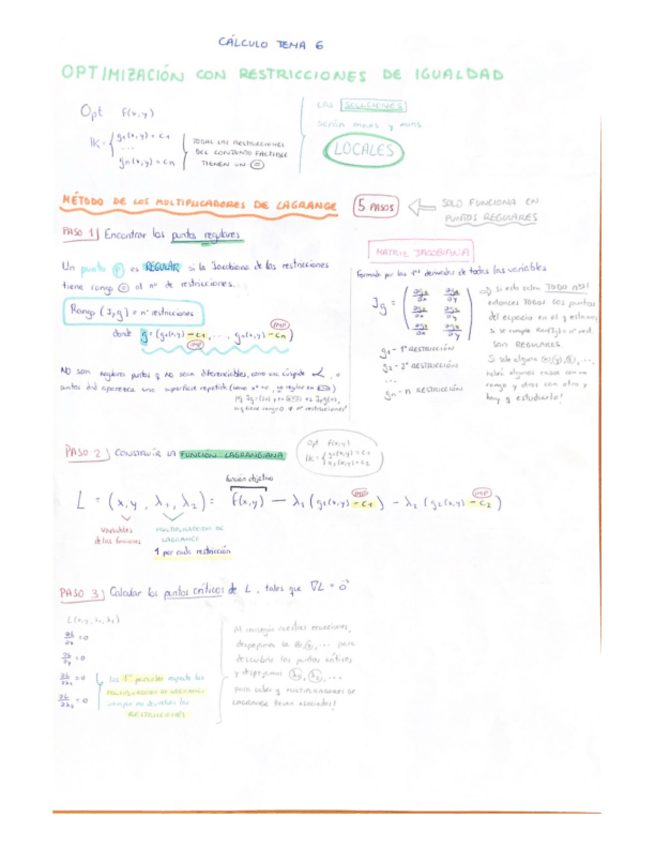 CÁLCULO TEMA 6
OPTIMIZACIÓN CON RESTRICCIONES DE IGUALDAD
Opt f(x,y)
K = { g₁(x,y) = c₁
...
gₙ(x,y) = cₙ
TODAS LAS RESTRICCIONES
DEL CONJUNTO FACTIBLE
TIENEN UN =
LAS SOLUCIONES
serán máxs y mins
LOCALES
MÉTODO DE LOS MULTIPLICADORES DE LAGRANGE
5 PASOS
SOLO FUNCIONA EN
PUNTOS REGULARES
PASO 1) Encontrar los puntos regulares
Un punto es REGULAR si la Jacobiana de las restricciones
tiene rango = al nº de restricciones...
Rango (Jg) = nº restricciones
donde g = (g₁(x,y) - c₁, ..., gₙ(x,y) - cₙ)
imp
imp
MATRIZ JACOBIANA
Formada por las 1ª derivadas de todas las variables
Jg =
g₁ - 1ª RESTRICCIÓN
g₂ - 2ª RESTRICCIÓN
...
gₙ - n RESTRICCIÓN
Si esto están TODO nºs!
entonces TODOS los puntos
del espacio en el q estemos
si se cumple
SON REGULARES.
habrá algunos casos con un
rango y otros con otro y
hay q estudiarlo!
NO son regulares puntos q no sean diferenciables, como una
PASO 2) CONSTRUIR LA FUNCIÓN LAGRANGIANA
Opt f(x,y)
K = { g₁(x,y) = c₁
g₂(x,y) = c₂
función objetivo
L = (x, y, λ₁, λ₂) = f(x,y) - λ₁ (g₁(x,y) - c₁) - λ₂ (g₂(x,y) - c₂)
imp
imp
Variables
de las funciones
MULTIPLICADOR DE
LAGRANGE
1 por cada restricción
PASO 3) Calcular los puntos críticos de L, tales que ∇L = 0⃗
L(x,y,λ₁,λ₂)
∂L/∂x = 0
∂L/∂y = 0
∂L/∂λ₁ = 0
∂L/∂λ₂ = 0
las 1ª parciales respecto los
MULTIPLICADORES DE LAGRANGE
siempre nos devuelven las
RESTRICCIONES
Al conseguir nuestras ecuaciones,
despejamos la x, y, ... para
descubrir los puntos críticos
y despejamos λ₁, λ₂, ...
para saber q MULTIPLICADORES DE
LAGRANGE llevan asociados!